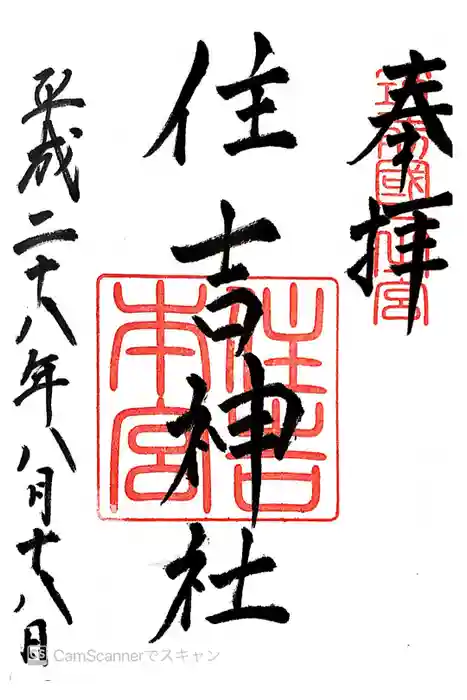 奉拝
住吉神社
住吉
本宮
平成二十八年八月十八日
CS CamScannerでスキャン